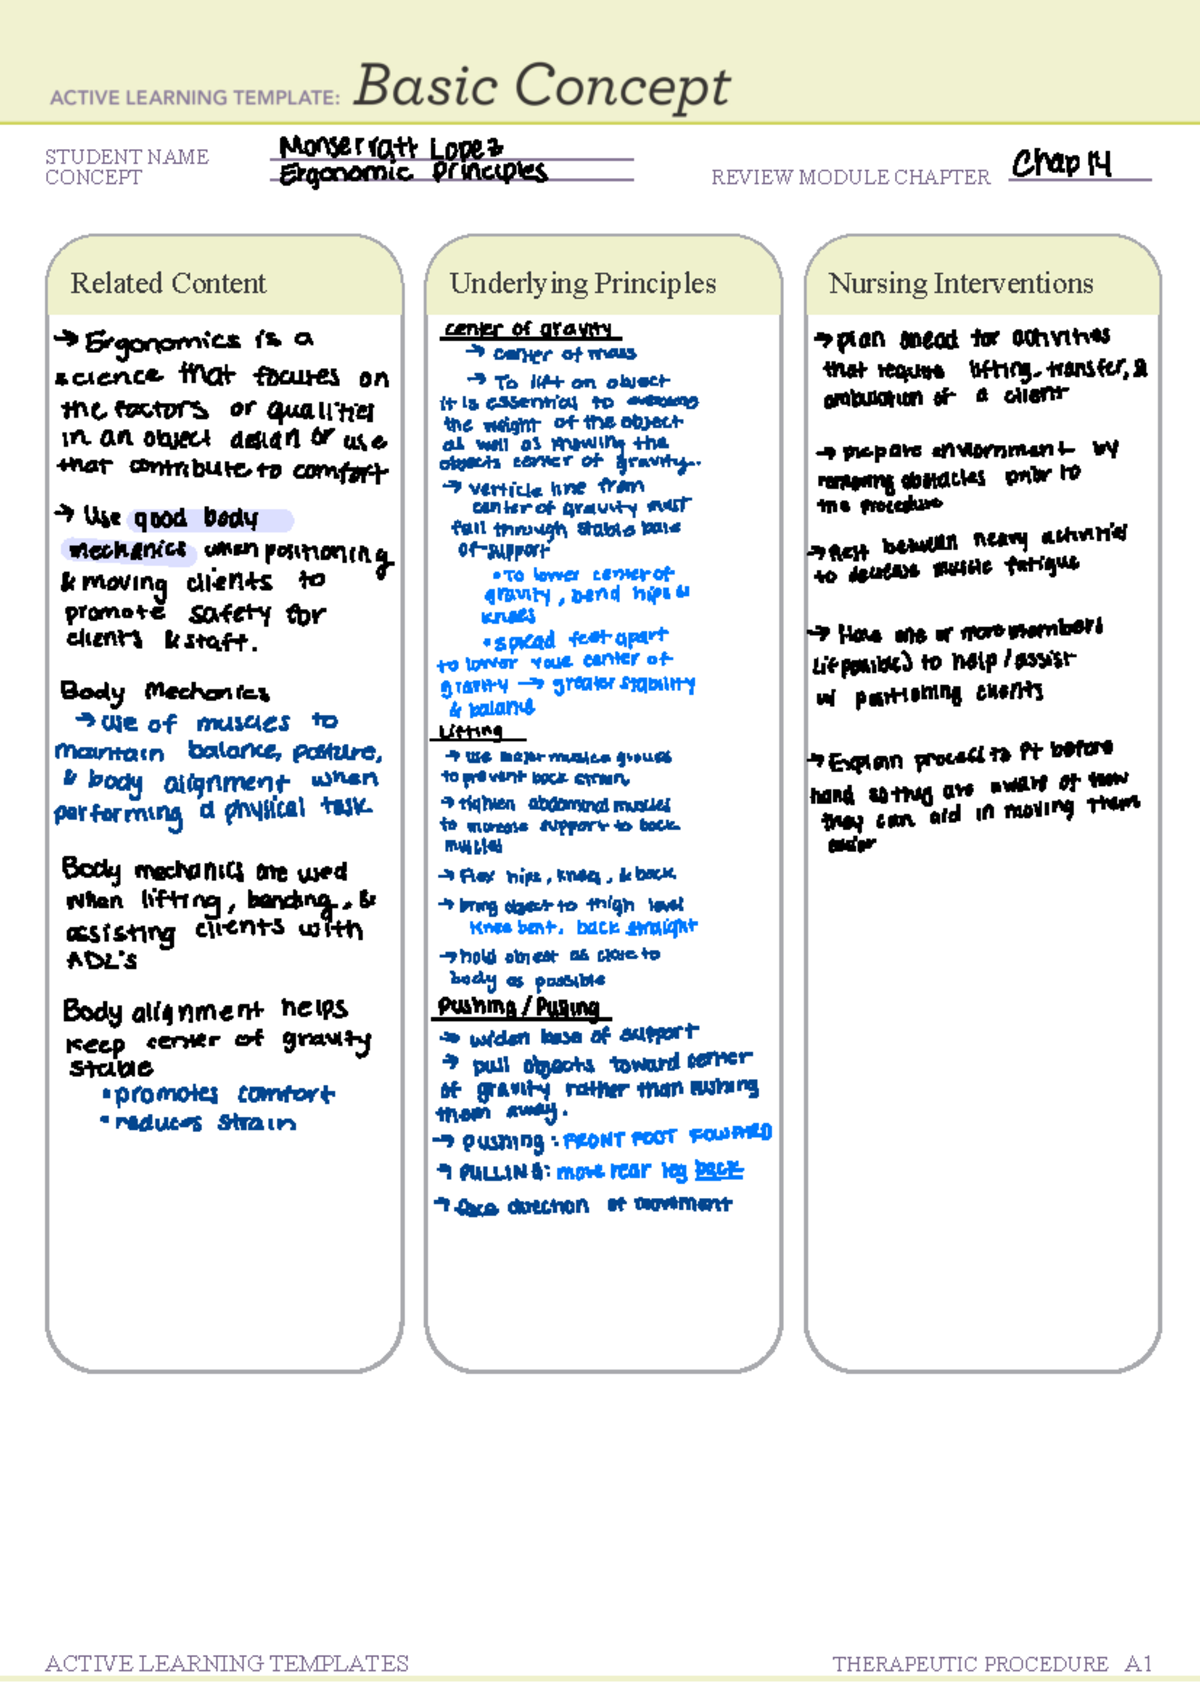 ACTIVE LEARNING TEMPLATE: Basic Concept
STUDENT NAME Monserratt Lopez
CONCEPT Ergonomic Principles
REVIEW MODULE CHAPTER Chap 14
Related Content
→ Ergonomics is a
science that focuses on
the factors or qualities
in an object design or use
that contribute to comfort
→ Use good body
mechanics when positioning
& moving clients to
promote safety for
clients & staff.
Body Mechanics
→ Use of muscles to
maintain balance, posture,
& body alignment when
performing a physical task
Body mechanics are used
when lifting, bending, &
assisting clients with
ADL's
Body alignment helps
keep center of gravity
stable
• promotes comfort
• reduces strain
Underlying Principles
center of gravity
→ center of mass
→ To lift an object
it is essential to overcome
the weight of the object
as well as knowing the
objects center of gravity.
→ verticle line from
center of gravity must
fall through stable base
of support
• To lower center of
gravity, bend hips &
knees
• spread feet apart
to lower your center of
gravity → greater stability
& balance
Lifting
→ use major muscle groups
to prevent back strain,
→ tighten abdominal muscles
to increase support to back
muscles
→ Flex hips, knees, & back
→ bring object to thigh level
knee bent, back straight
→ hold object as close to
body as possible
Pushing / Pulling
→ widen base of support
→ pull objects toward center
of gravity rather than pushing
them away.
→ pushing: FRONT FOOT FOWARD
→ PULLING: move rear leg back
→ face direction of movement
Nursing Interventions
→ plan ahead for activities
that require lifting, transfer, &
ambulation of a client
→ prepare enviornment by
removing obstacles prior to
the procedure
→ Rest between heavy activities
to decrease muscle fatigue
→ Have one or more members
(if possible) to help / assist
w/ positioning clients
→ Explain process to pt before
hand so they are aware of how
they can aid in moving them
easier
ACTIVE LEARNING TEMPLATES
THERAPEUTIC PROCEDURE A1